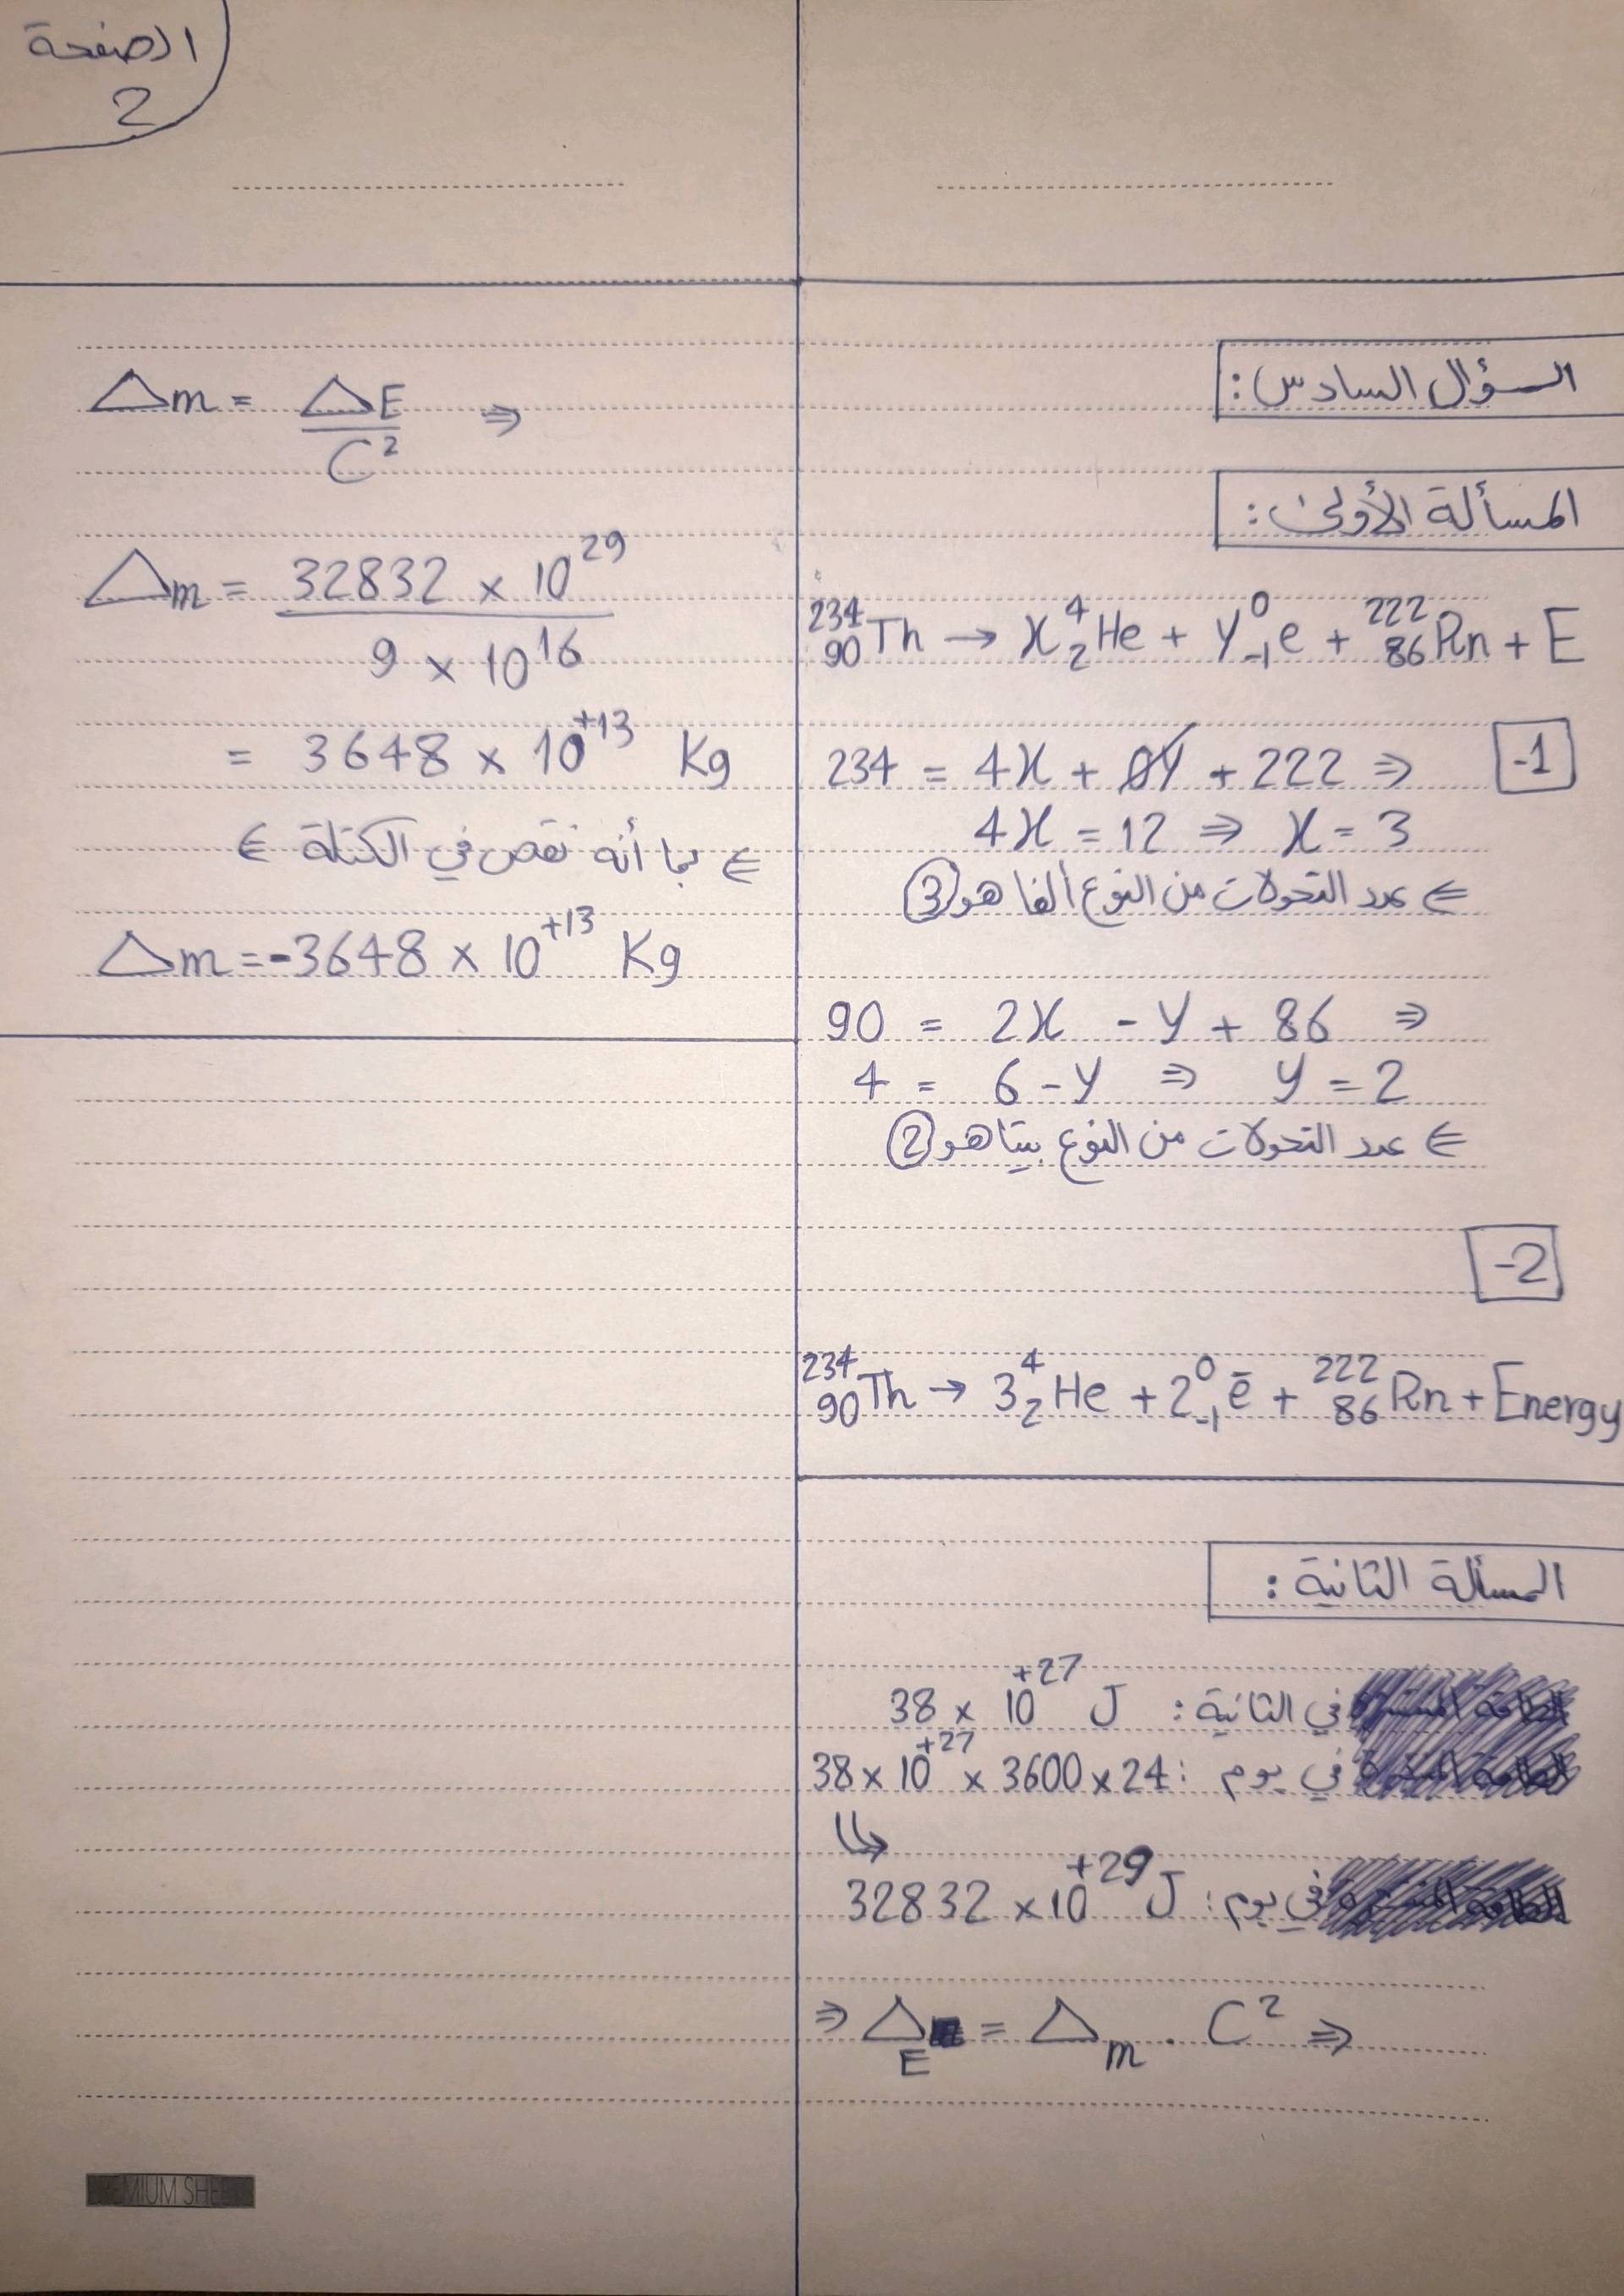 الصفحة
2
السؤال السادس:
المسألة الأولى:
²³⁴₉₀Th → x ⁴₂He + y ⁰₋₁e + ²²²₈₆Rn + E
-1
234 = 4x + 0y + 222 ⇒
4x = 12 ⇒ x = 3
⇐ عدد التحولات من النوع ألفا هو 3
90 = 2x - y + 86 ⇒
4 = 6 - y ⇒ y = 2
⇐ عدد التحولات من النوع بيتا هو 2
-2
²³⁴₉₀Th → 3 ⁴₂He + 2 ⁰₋₁ē + ²²²₈₆Rn + Energy
المسألة الثانية:
في الثانية: 38 × 10⁺²⁷ J
في يوم: 38 × 10⁺²⁷ × 3600 × 24
↳
في يوم: 32832 × 10⁺²⁹ J
⇒ ΔE = Δm . C² ⇒
Δm = ΔE / C² ⇒
Δm = 32832 × 10²⁹ / 9 × 10¹⁶
= 3648 × 10⁺¹³ Kg
⇐ بما أنه نقص في الكتلة ⇐
Δm = -3648 × 10⁺¹³ Kg
EMIUM SHE